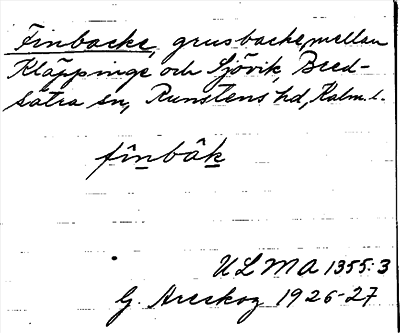 Finbacke, grusbacke, mellan
Kläppinge och Sjövik, Bred-
sätra sn, Runstens hd, Kalm. l.
fînbâk
ULMA 1355:3
G. Areskog 1926-27